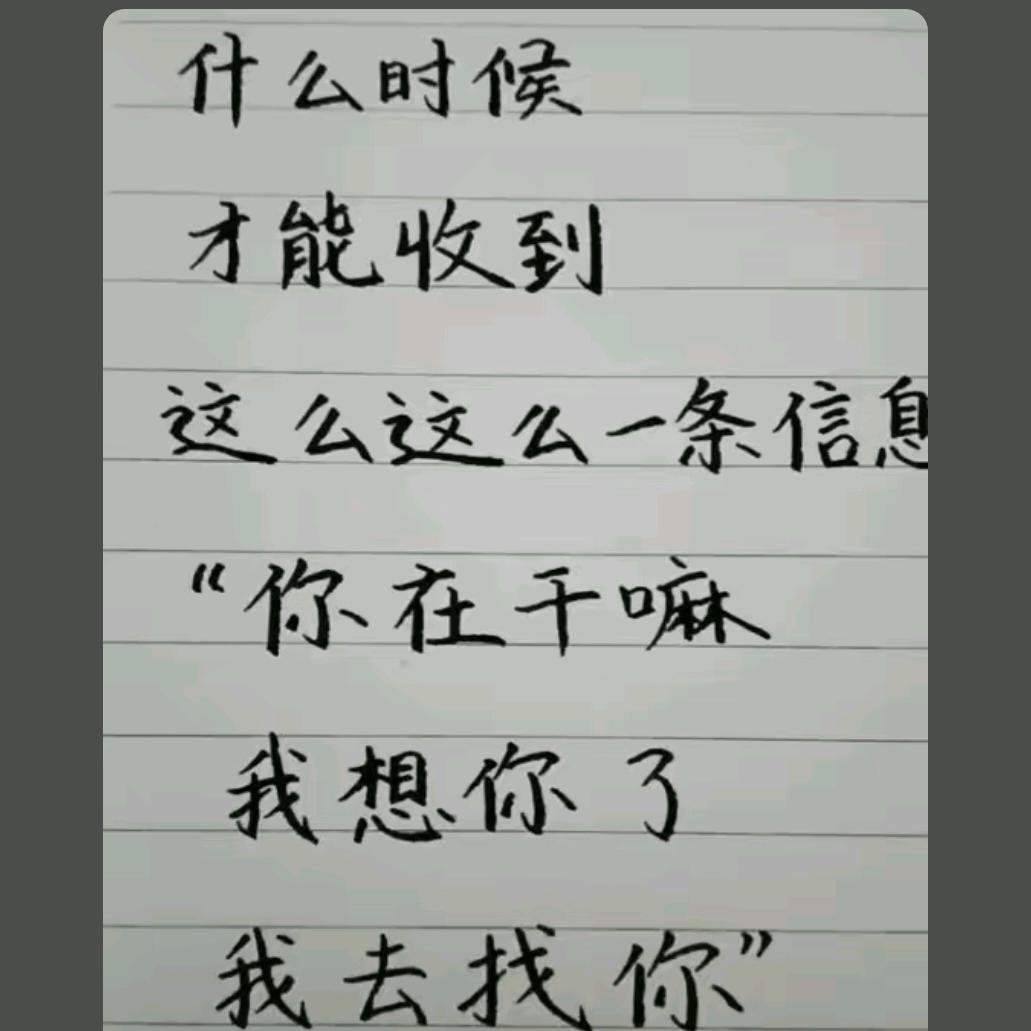 什么时候
才能收到
这么这么一条信息
“你在干嘛
我想你了
我去找你”